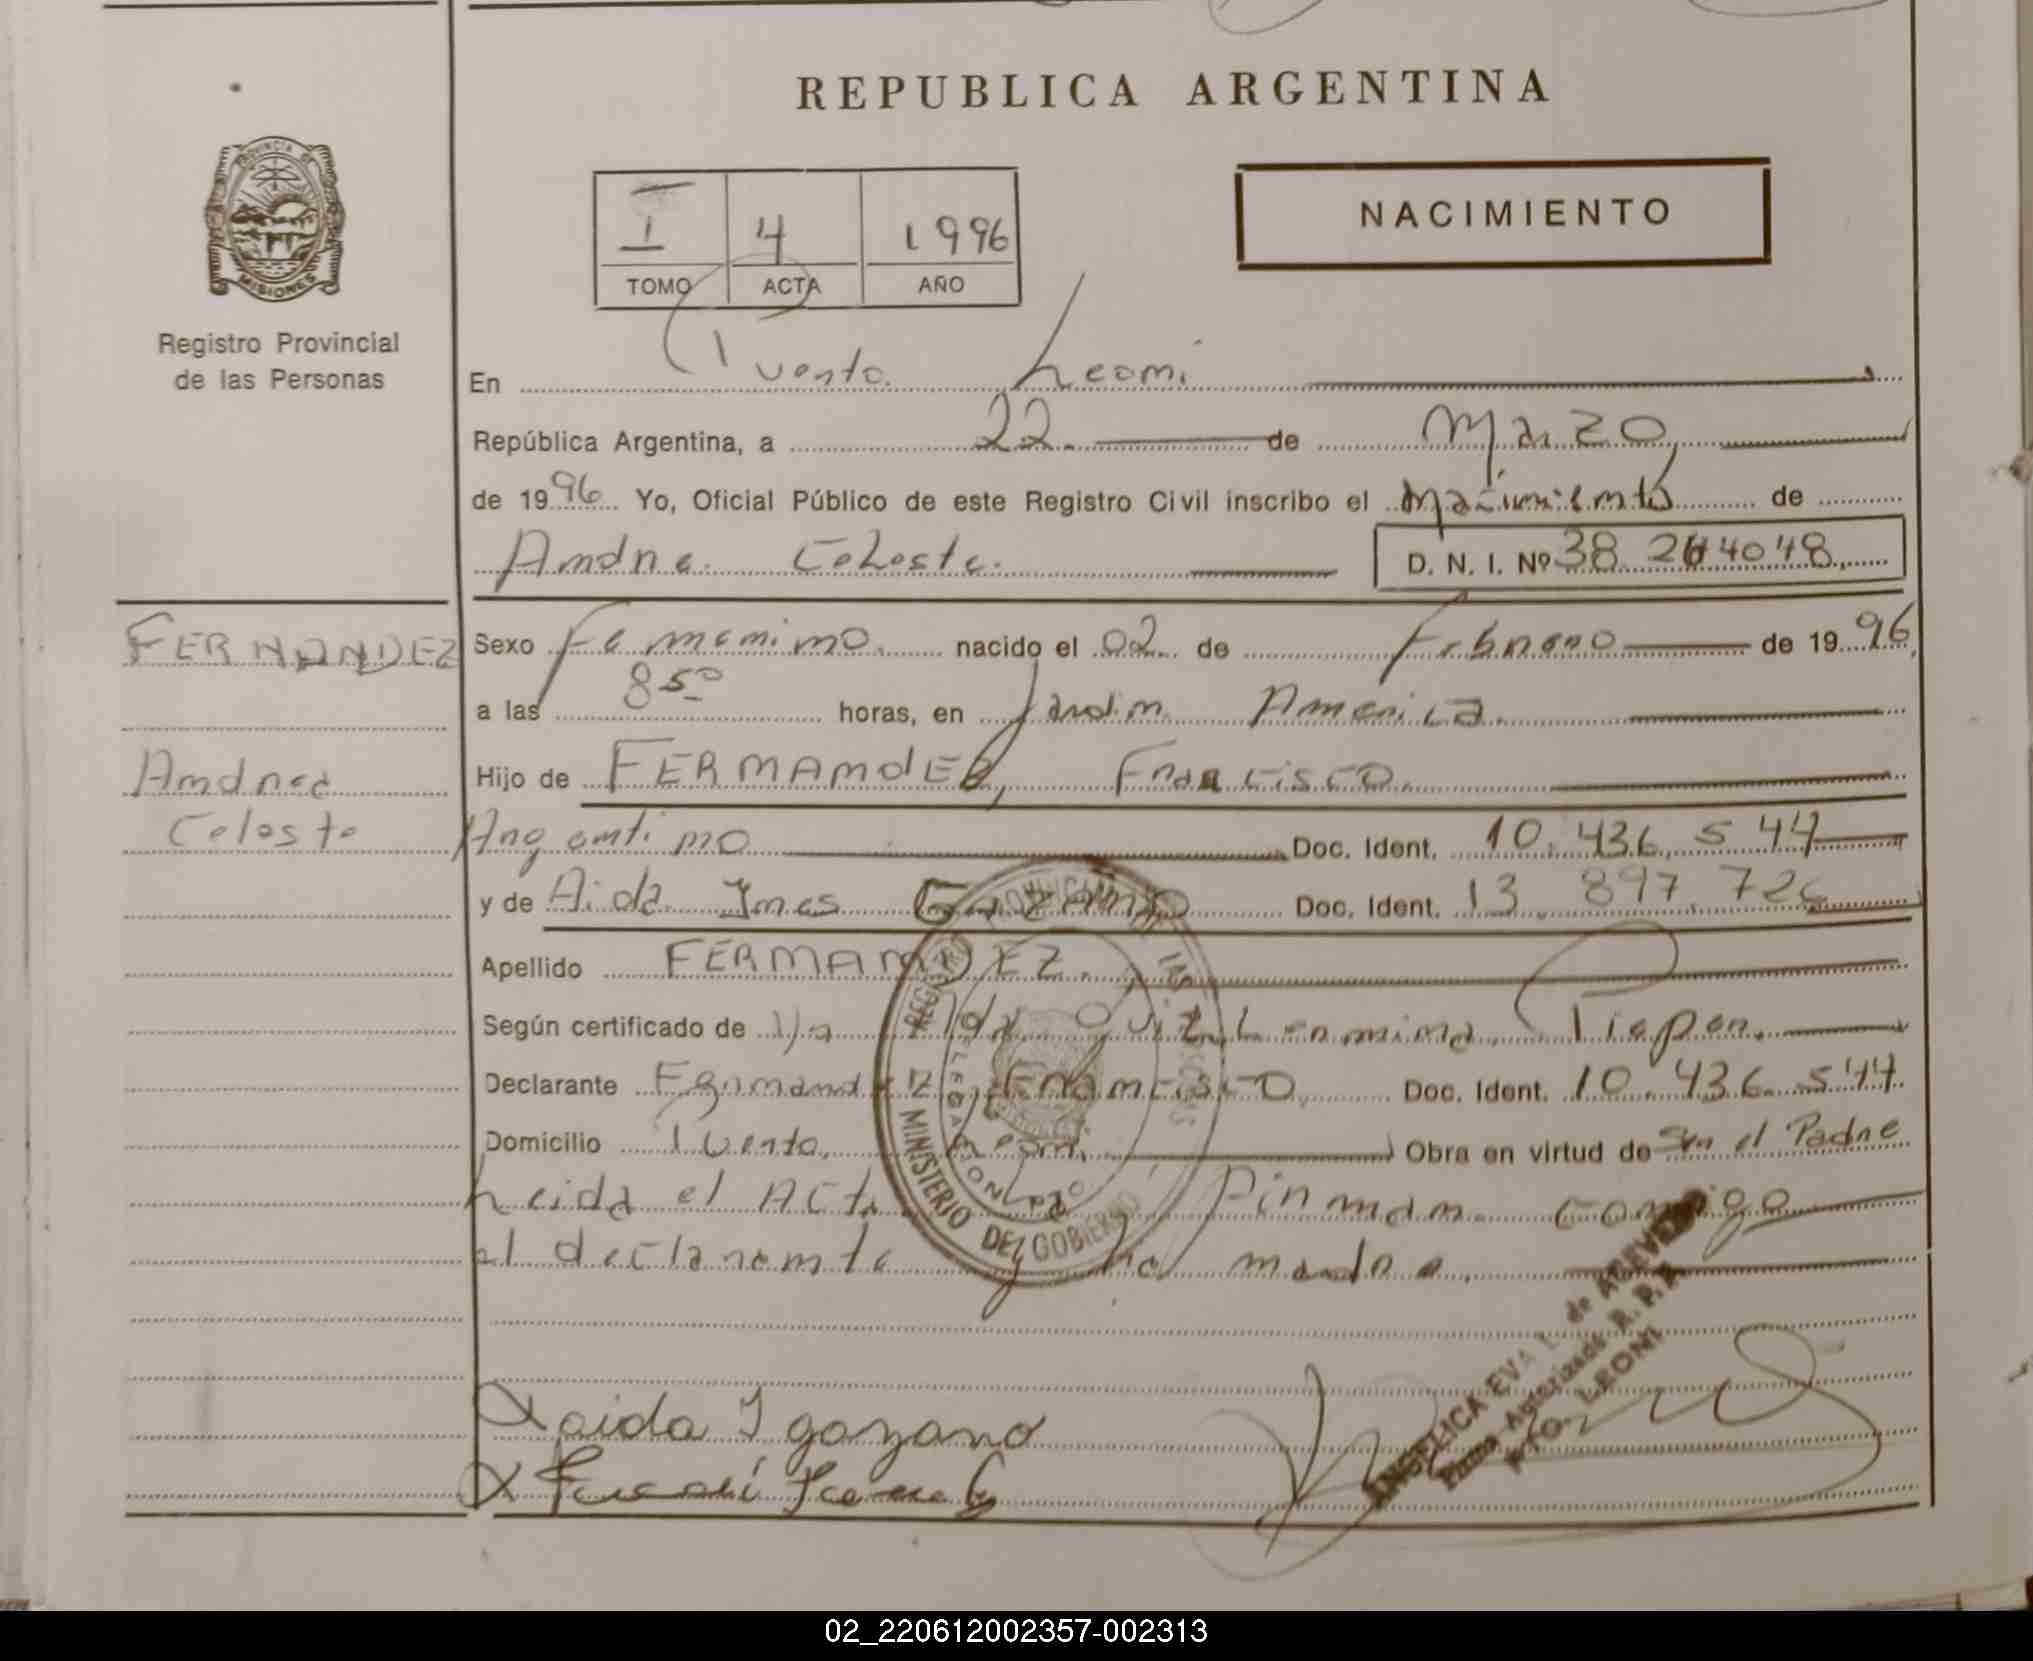 REPUBLICA ARGENTINA
PROVINCIA DE MISIONES
Registro Provincial
de las Personas
I 4 1996
TOMO ACTA AÑO
NACIMIENTO
En Puerto Leoni
República Argentina, a 22 de Marzo
de 1996 Yo, Oficial Público de este Registro Civil inscribo el Nacimiento de
Andrea Celeste D. N. I. Nº
FERNANDEZ
Andrea
Celeste
Sexo Femenino nacido el 02 de Febrero de 1996,
a las 8 50 horas, en Jardin America
Hijo de FERNANDEZ, Francisco
Argentino Doc. Ident. 10.436.544
y de Aida Ines Doc. Ident. 13.897.726
Apellido FERNANDEZ,
Según certificado de
Declarante Fernandez, Francisco Doc. Ident. 10.436.544
Domicilio Puerto Leoni Obra en virtud de Ser el Padre
Leida el Acta La Firman Conmigo
el declarante y la madre.
REGISTRO PROVINCIAL DE LAS PERSONAS
DELEGACION
MINISTERIO DE GOBIERNO
X aida I gozano
X
ANGELICA EVA L. de ACEVEDO
Firma Autorizada R. P. P.
PTO. LEONI
02_220612002357-002313